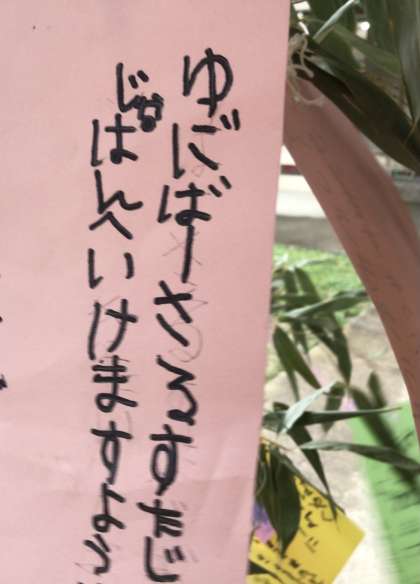 ゆにばーさるすたじ
じゃぱんへいけますよう